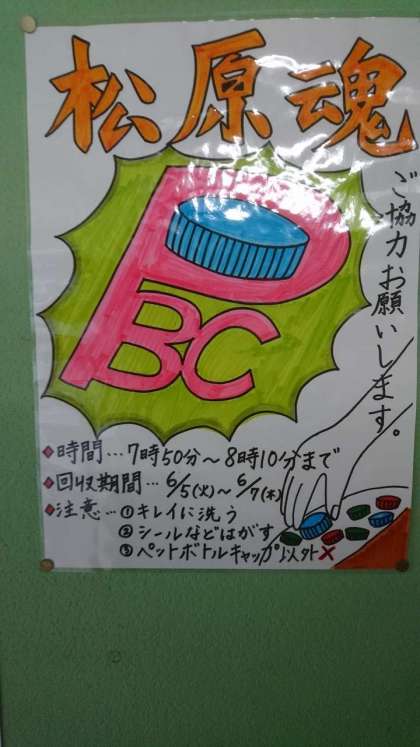 松原魂
PBC
ご協力お願いします。
◆時間…7時50分～8時10分まで
◆回収期間…6/5(火)～6/7(木)
◆注意…①キレイに洗う
②シールなどはがす
③ペットボトルキャップ以外×